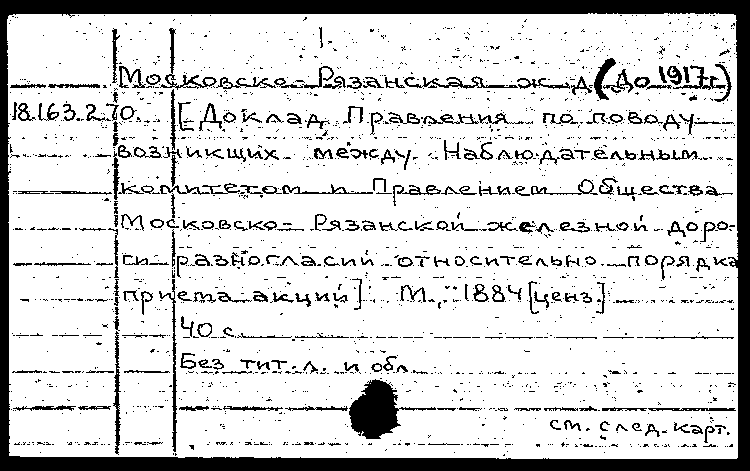 Московско-Рязанская ж.д. (до 1917г)
18.163.2.70. [Доклад Правления по поводу
возникших между Наблюдательным
комитетом и Правлением Общества
Московско-Рязанской железной доро-
ги разногласий относительно порядка
приема акций] М., 1884 [ценз.]
40 с.
Без тит. л. и обл.
см. след. карт.